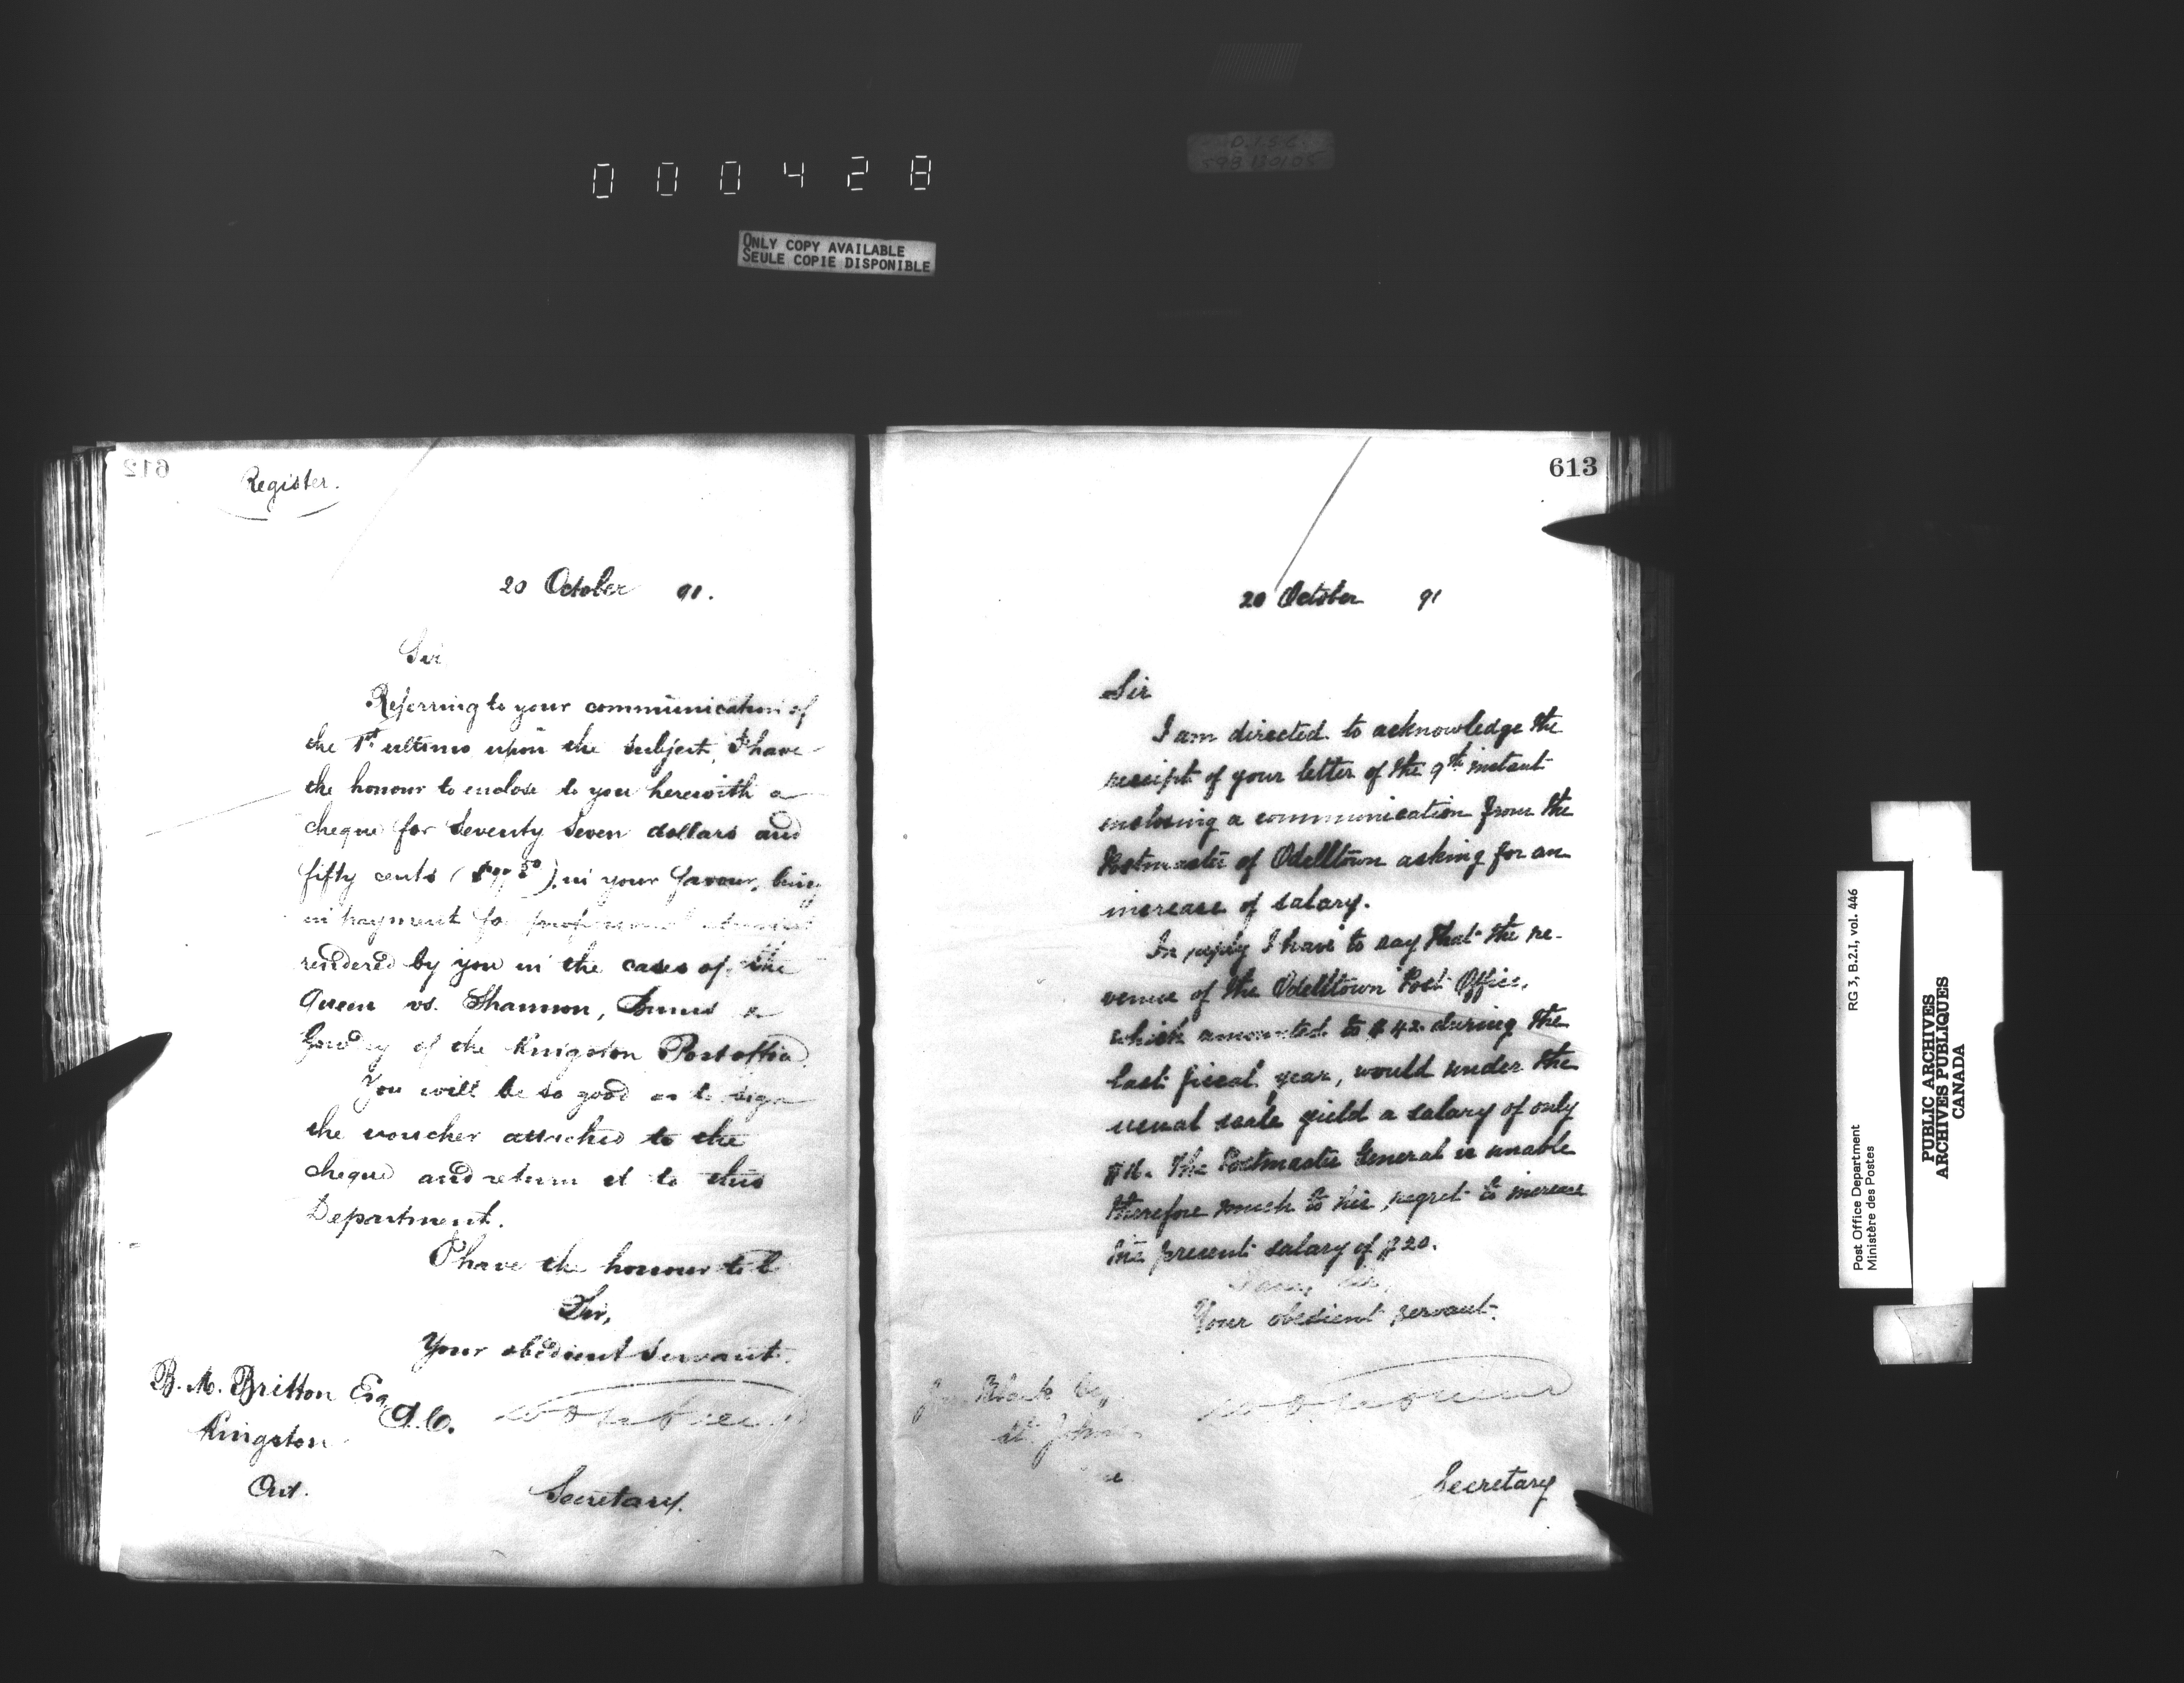 000428
ONLY COPY AVAILABLE
SEULE COPIE DISPONIBLE
612
Register.
20 October 91.
Sir
Referring to your communication of
the 1st ultimo upon the subject, I have
the honour to enclose to you herewith a
cheque for Seventy Seven dollars and
fifty cents ($77.50), in your favour, being
in payment for professional services
rendered by you in the cases of the
Queen vs. Shannon, &
of the Kingston Post office.
You will be so good as to sign
the voucher attached to the
cheque and return it to this
Department.
I have the honour to be
Sir,
Your obedient Servant.
B. M. Britton Esq
Q.C.
Kingston
Ont.
Secretary.
613
20 October 91
Sir
I am directed to acknowledge the
receipt of your letter of the 9th instant
enclosing a communication from the
Postmaster of Odelltown asking for an
increase of salary.
In reply I have to say that the re-
venue of the Odelltown Post Office,
which amounted to $42. during the
last fiscal year, would under the
usual scale yield a salary of only
$16. The Postmaster General is unable
therefore much to his regret to increase
the present salary of $20.
I am, Sir,
Your obedient servant.
Black Esq
St. Johns
Secretary
Post Office Department
Ministère des Postes
RG 3, B.2.I, vol. 446
PUBLIC ARCHIVES
ARCHIVES PUBLIQUES
CANADA